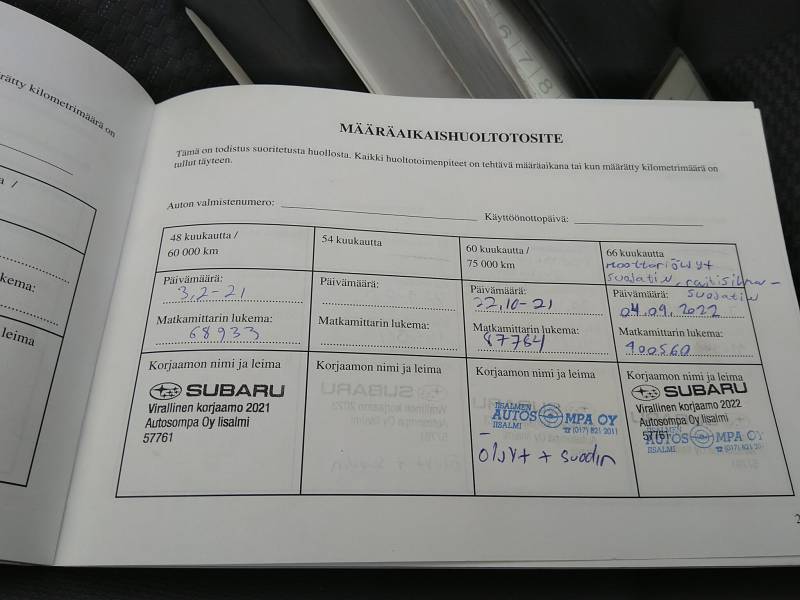 6 7 8
rätty kilometrimäärä on
lukema:
leima
MÄÄRÄAIKAISHUOLTOTOSITE
Tämä on todistus suoritetusta huollosta. Kaikki huoltotoimenpiteet on tehtävä määräaikana tai kun määrätty kilometrimäärä on
tullut täyteen.
Auton valmistenumero:
Käyttöönottopäivä:
48 kuukautta /
60 000 km
Päivämäärä:
3.2-21
Matkamittarin lukema:
68933
Korjaamon nimi ja leima
SUBARU
Virallinen korjaamo 2021
Autosompa Oy Iisalmi
57761
54 kuukautta
Päivämäärä:
Matkamittarin lukema:
Korjaamon nimi ja leima
60 kuukautta /
75 000 km
Päivämäärä:
22.10-21
Matkamittarin lukema:
87764
Korjaamon nimi ja leima
IISALMEN
AUTOSOMPA OY
IISALMI ☎ (017) 821 2011
Öljyt + suodin
66 kuukautta
Moottoriöljyt
suodatin, raitisilma-
suodatin
Päivämäärä:
04.09.2022
Matkamittarin lukema:
100560
Korjaamon nimi ja leima
SUBARU
Virallinen korjaamo 2022
Autosompa Oy Iisalmi
57761
IISALMEN
AUTOSOMPA OY
IISALMI ☎ (017) 821 2011